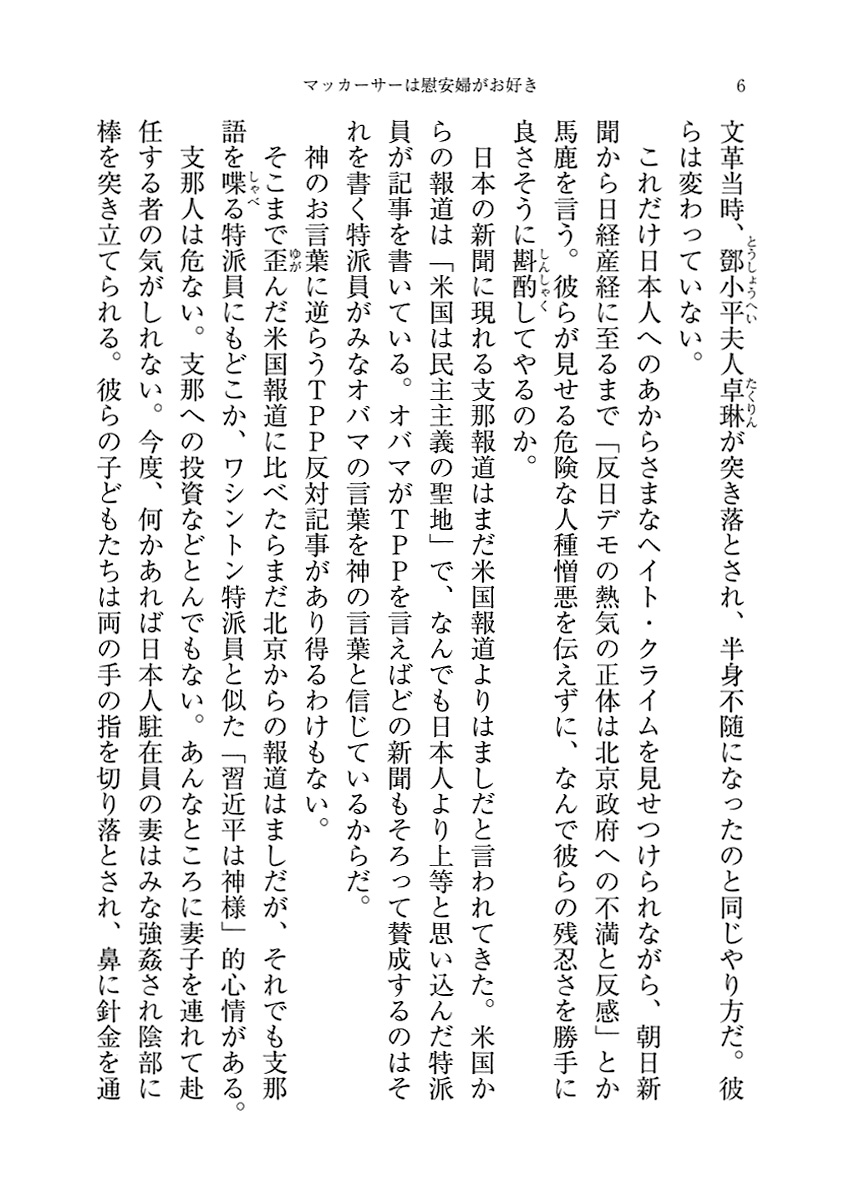 マッカーサーは慰安婦がお好き
6
文革当時、鄧小平夫人卓琳が突き落とされ、半身不随になったのと同じやり方だ。彼
とうしょうへい
たくりん
らは変わっていない。
これだけ日本人へのあからさまなヘイト・クライムを見せつけられながら、朝日新
聞から日経産経に至るまで「反日デモの熱気の正体は北京政府への不満と反感」とか
馬鹿を言う。彼らが見せる危険な人種憎悪を伝えずに、なんで彼らの残忍さを勝手に
良さそうに斟酌してやるのか。
しんしゃく
日本の新聞に現れる支那報道はまだ米国報道よりはましだと言われてきた。米国か
らの報道は「米国は民主主義の聖地」で、なんでも日本人より上等と思い込んだ特派
員が記事を書いている。オバマがTPPを言えばどの新聞もそろって賛成するのはそ
れを書く特派員がみなオバマの言葉を神の言葉と信じているからだ。
神のお言葉に逆らうTPP反対記事があり得るわけもない。
そこまで歪んだ米国報道に比べたらまだ北京からの報道はましだが、それでも支那
ゆが
語を喋る特派員にもどこか、ワシントン特派員と似た「習近平は神様」的心情がある。
しゃべ
支那人は危ない。支那への投資などとんでもない。あんなところに妻子を連れて赴
任する者の気がしれない。今度、何かあれば日本人駐在員の妻はみな強姦され陰部に
棒を突き立てられる。彼らの子どもたちは両の手の指を切り落とされ、鼻に針金を通